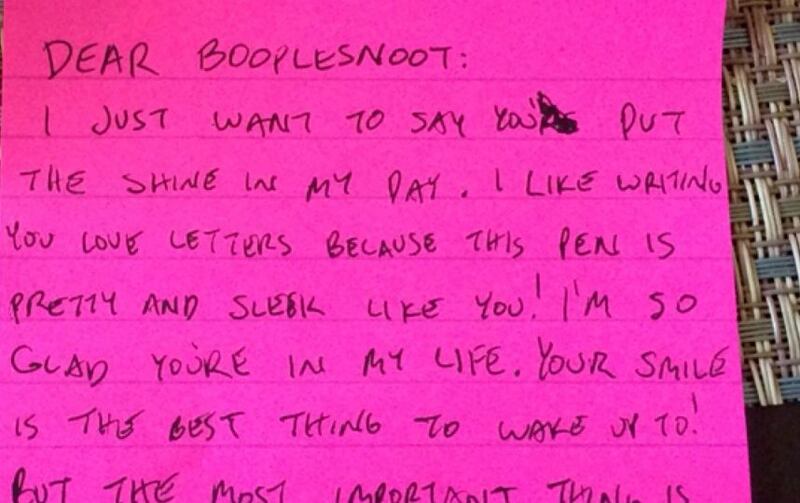 DEAR BOOPLESNOOT:
I JUST WANT TO SAY YOU PUT
THE SHINE IN MY DAY. I LIKE WRITING
YOU LOVE LETTERS BECAUSE THIS PEN IS
PRETTY AND SLEEK LIKE YOU! I'M SO
GLAD YOU'RE IN MY LIFE. YOUR SMILE
IS THE BEST THING TO WAKE UP TO!
BUT THE MOST IMPORTANT THING IS